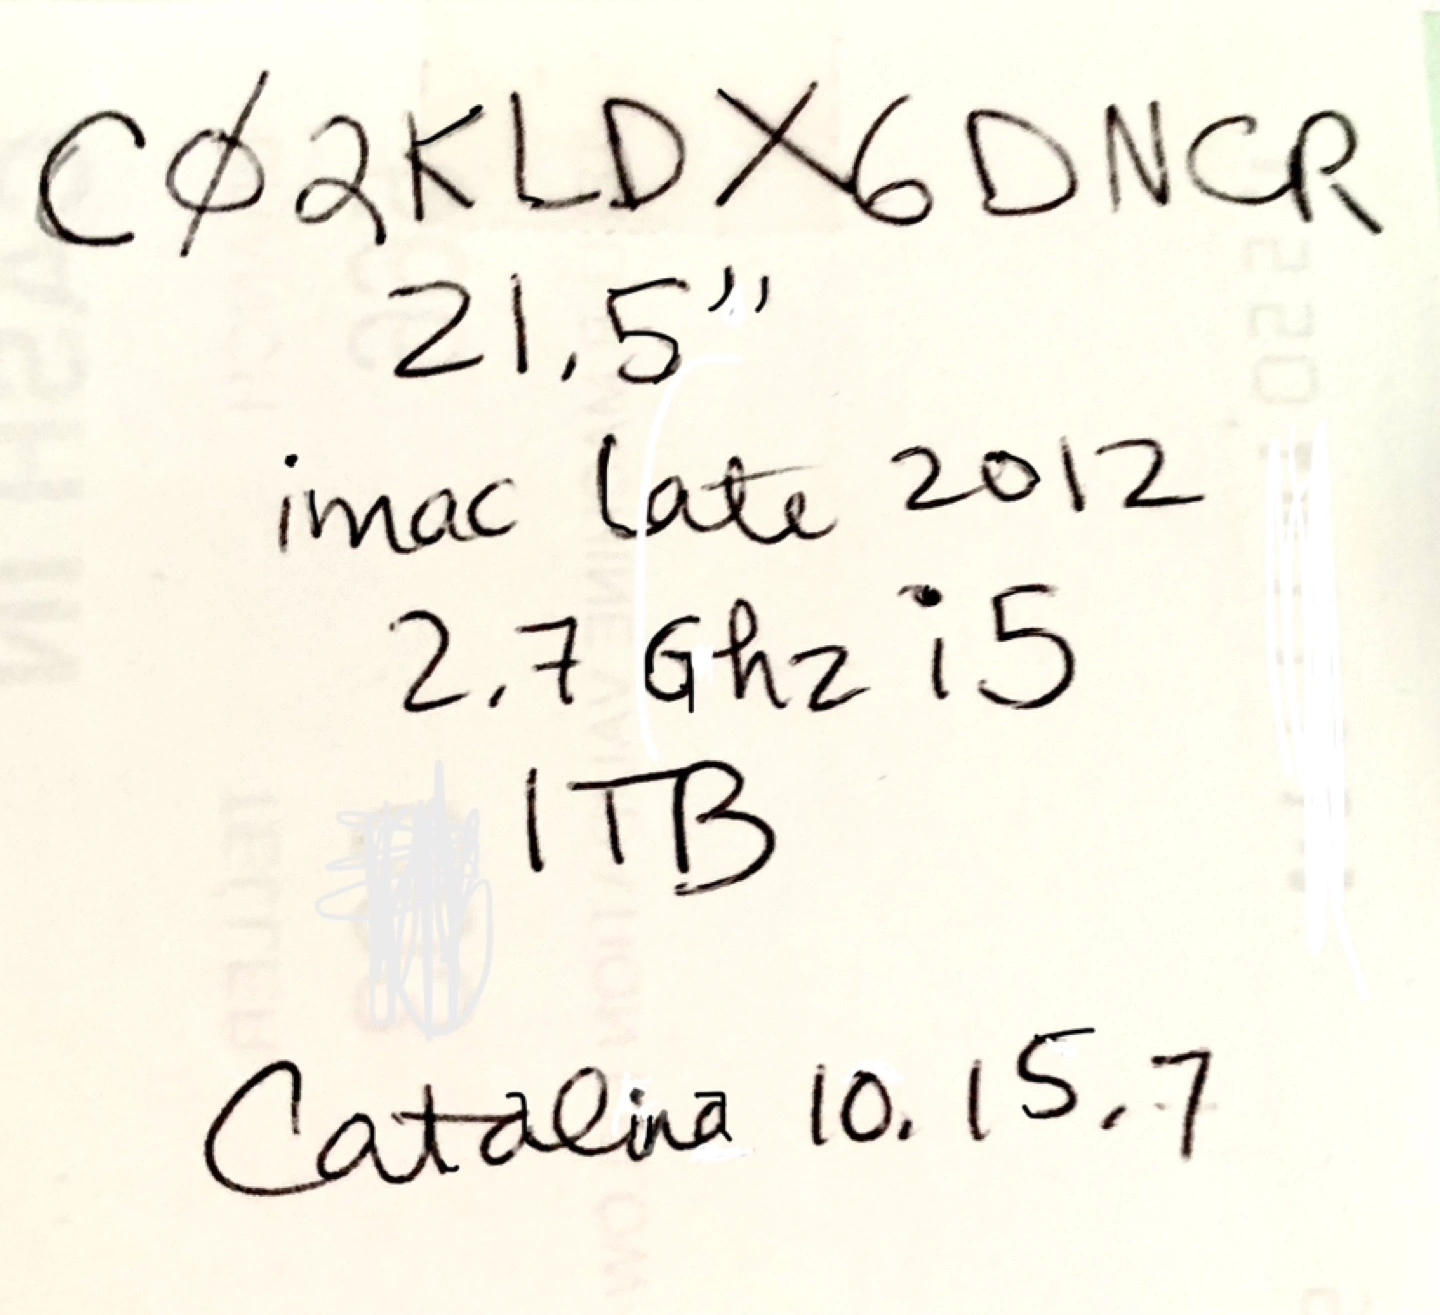 CØ2KLDX6DNCR
21.5"
imac late 2012
2.7 Ghz i5
1TB
Catalina 10.15.7